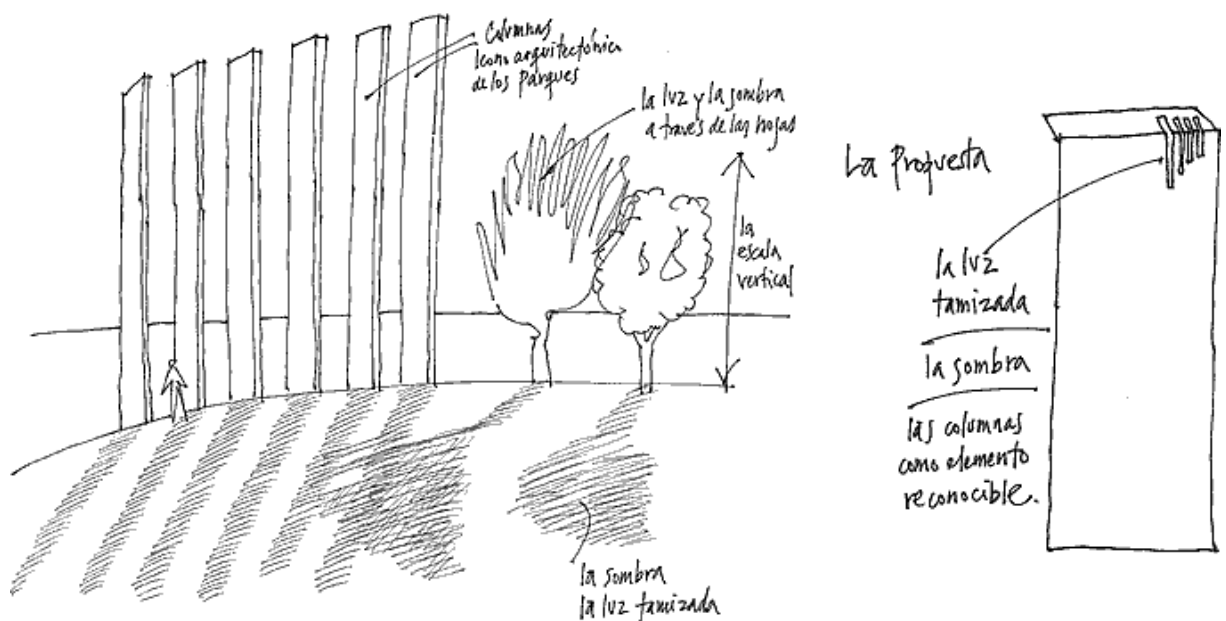 Columnas
Icono arquitectónico
de los Parques
la luz y la sombra
a través de las hojas
la
escala
vertical
la sombra
la luz tamizada
La Propuesta
la luz
tamizada
la sombra
las columnas
como elemento
reconocible.